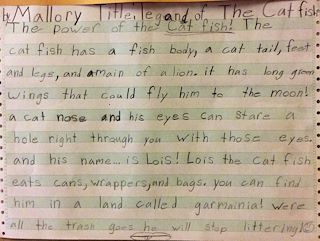 by Mallory Title: legand of The Cat fish
The power of the Cat fish! The
cat fish has a fish body, a cat tail, feet
and legs, and a main of a lion. it has long green
wings that could fly him to the moon!
a cat nose and his eyes can stare a
hole right through you with those eyes.
and his name... is Lois! Lois the cat fish
eats cans, wrappers, and bags. you can find
him in a land called garmainia! were
all the trash goes he will stop littering!